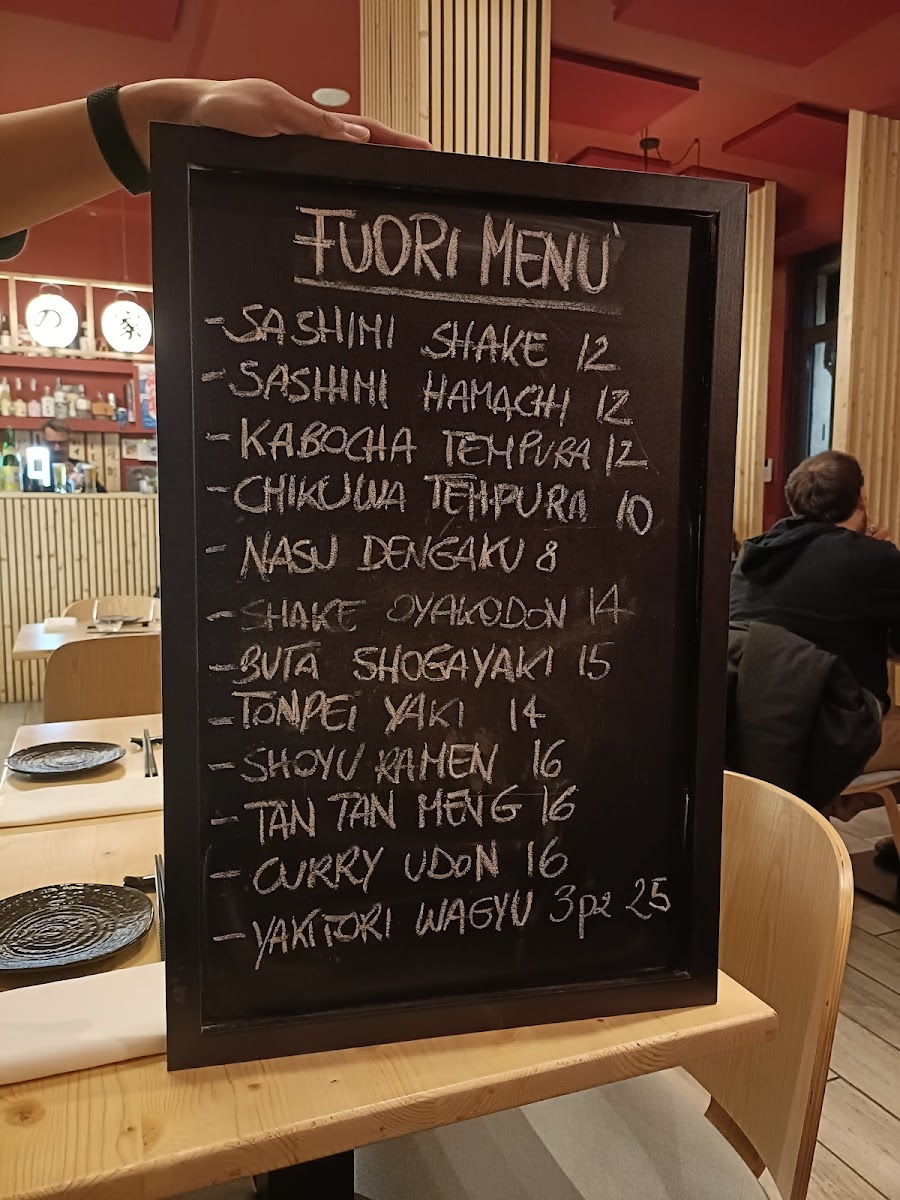 の 家
FUORI MENU'
- SASHIMI SHAKE 12
- SASHIMI HAMACHI 12
- KABOCHA TEMPURA 12
- CHIKUWA TEMPURA 10
- NASU DENGAKU 8
- SHAKE OYAKODON 14
- BUTA SHOGAYAKI 15
- TONPEI YAKI 14
- SHOYU RAMEN 16
- TAN TAN MENG 16
- CURRY UDON 16
- YAKITORI WAGYU 3pz 25